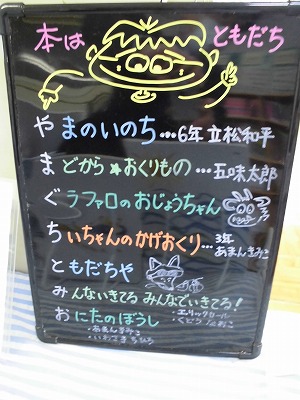 本は ともだち
やまのいのち…6年 立松和平
まどから★おくりもの…五味太郎
グラファロのおじょうちゃん
ちぃちゃんのかげおくり…3年 あまんきみこ
ともだちや
みんないきてる みんなでいきてる!
おにたのぼうし
・あまんきみこ
・いわさきちひろ
・エリックカール
・くどうなおこ